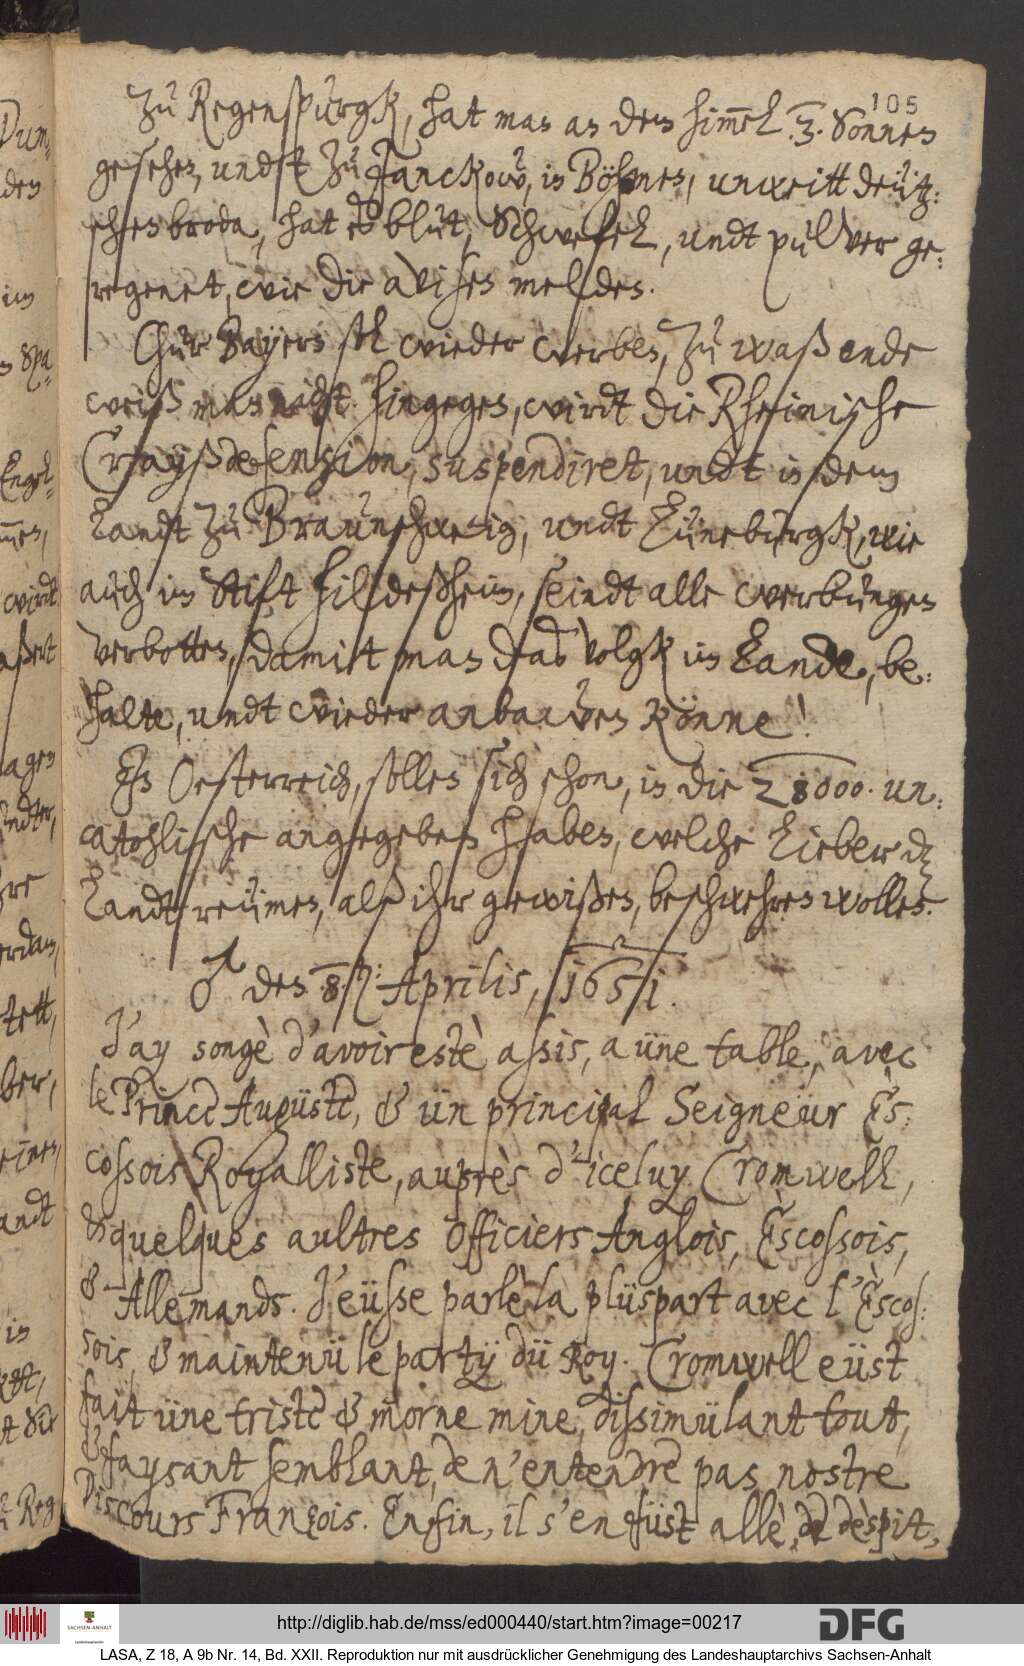 105
Zu Regenspurgk, hat man an dem himmel .3. Sonnen
gesehen, undt zu Janckow, in Böhmen, unweitt deutz:
schenbroda, hat es blut, Schwefel, undt pulver ge:
regenet, wie die avisen melden.
Chur Bayern soll wieder werben, zu waß ende
weiß man nicht. hingegen, wirdt die Rheinische
Crayßdefension, suspendiret, undt in dem
Landt zu Braunschweig, undt Lüneburgk, wie
auch im Stift hildeßheim, seindt alle werbungen
verbotten, damitt man daß volgk im Lande, be:
halte, undt wieder anbawen könne!
In Oesterreich, sollen sich schon, in die 28000. un:
catohlische angegeben haben, welche Lieber dz
Landt reümen, alß ihr gewißen, beschwehren wollen.
♂ den .8.: Aprilis, 1651.
J'ay songè d'avoir estè assis, a üne table, avec
le Prince Augüste, & ün principal Seigneür Es:
cossois Royalliste, auprès d'iceluy Cromwell,
& quelques aultres Officiers Anglois, Escossois,
& Allemands. J'eüsse parlè la plüspart avec l'Escos:
sois, & maintenü le party dü Roy. Cromwell eüst
fait üne triste & morne mine, dissimülant tout,
& faysant semblant, de n'entendre pas nostre
Discours François. Enfin, il s'en füst allè, de dèspit,
http://diglib.hab.de/mss/ed000440/start.htm?image=00217
SACHSEN-ANHALT
DFG
LASA, Z 18, A 9b Nr. 14, Bd. XXII. Reproduktion nur mit ausdrücklicher Genehmigung des Landeshauptarchivs Sachsen-Anhalt